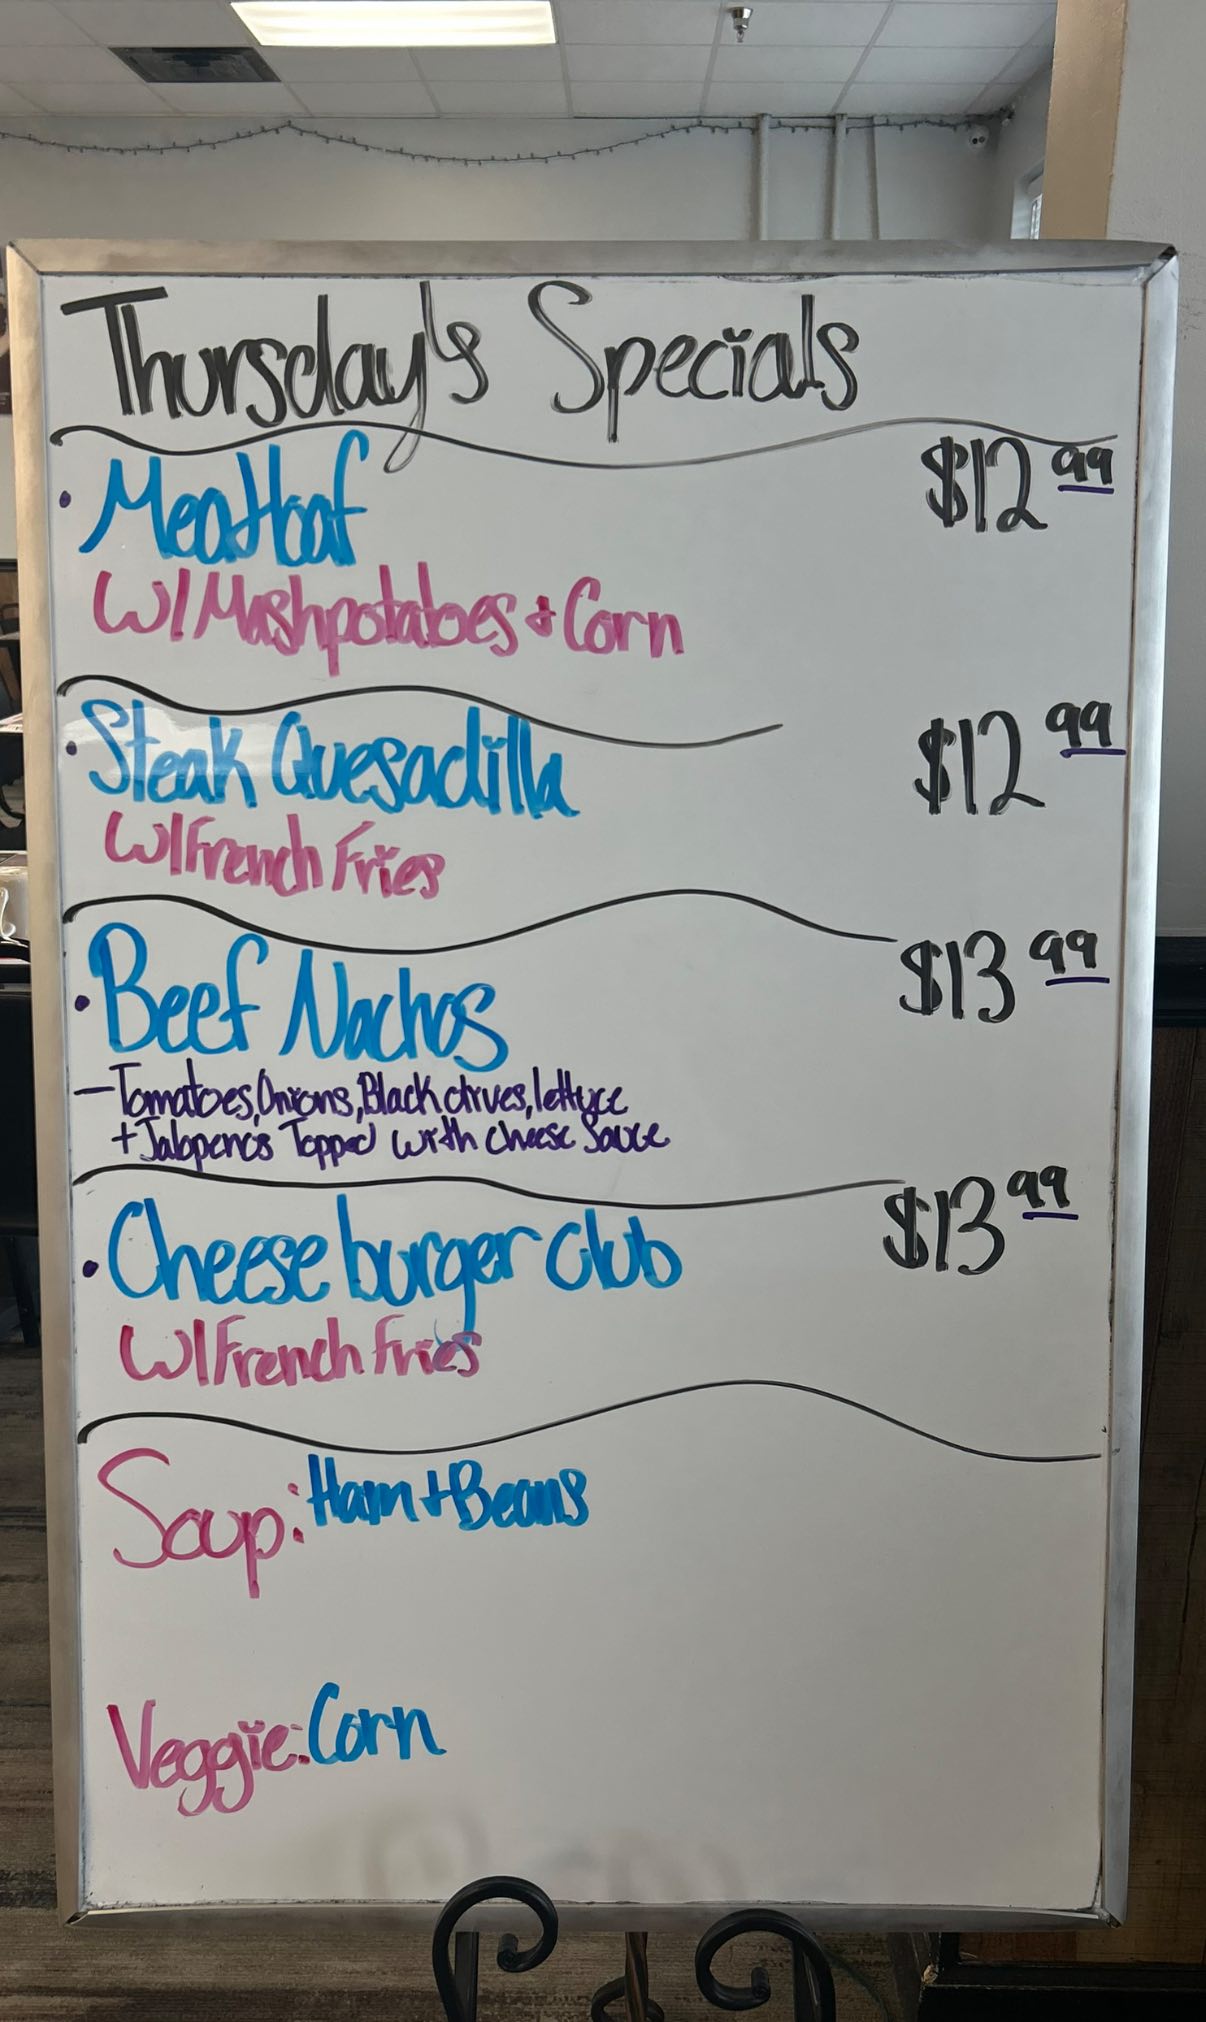 Thursday's Specials
• Meatloaf $12 99
W/ Mashpotatoes + Corn
• Steak Quesadilla $12 99
W/ French Fries
• Beef Nachos $13 99
- Tomatoes, Onions, Black olives, lettuce
+ Jalapeno's Topped with cheese Sauce
• Cheese burger club $13 99
W/ French Fries
Soup: Ham + Beans
Veggie: Corn